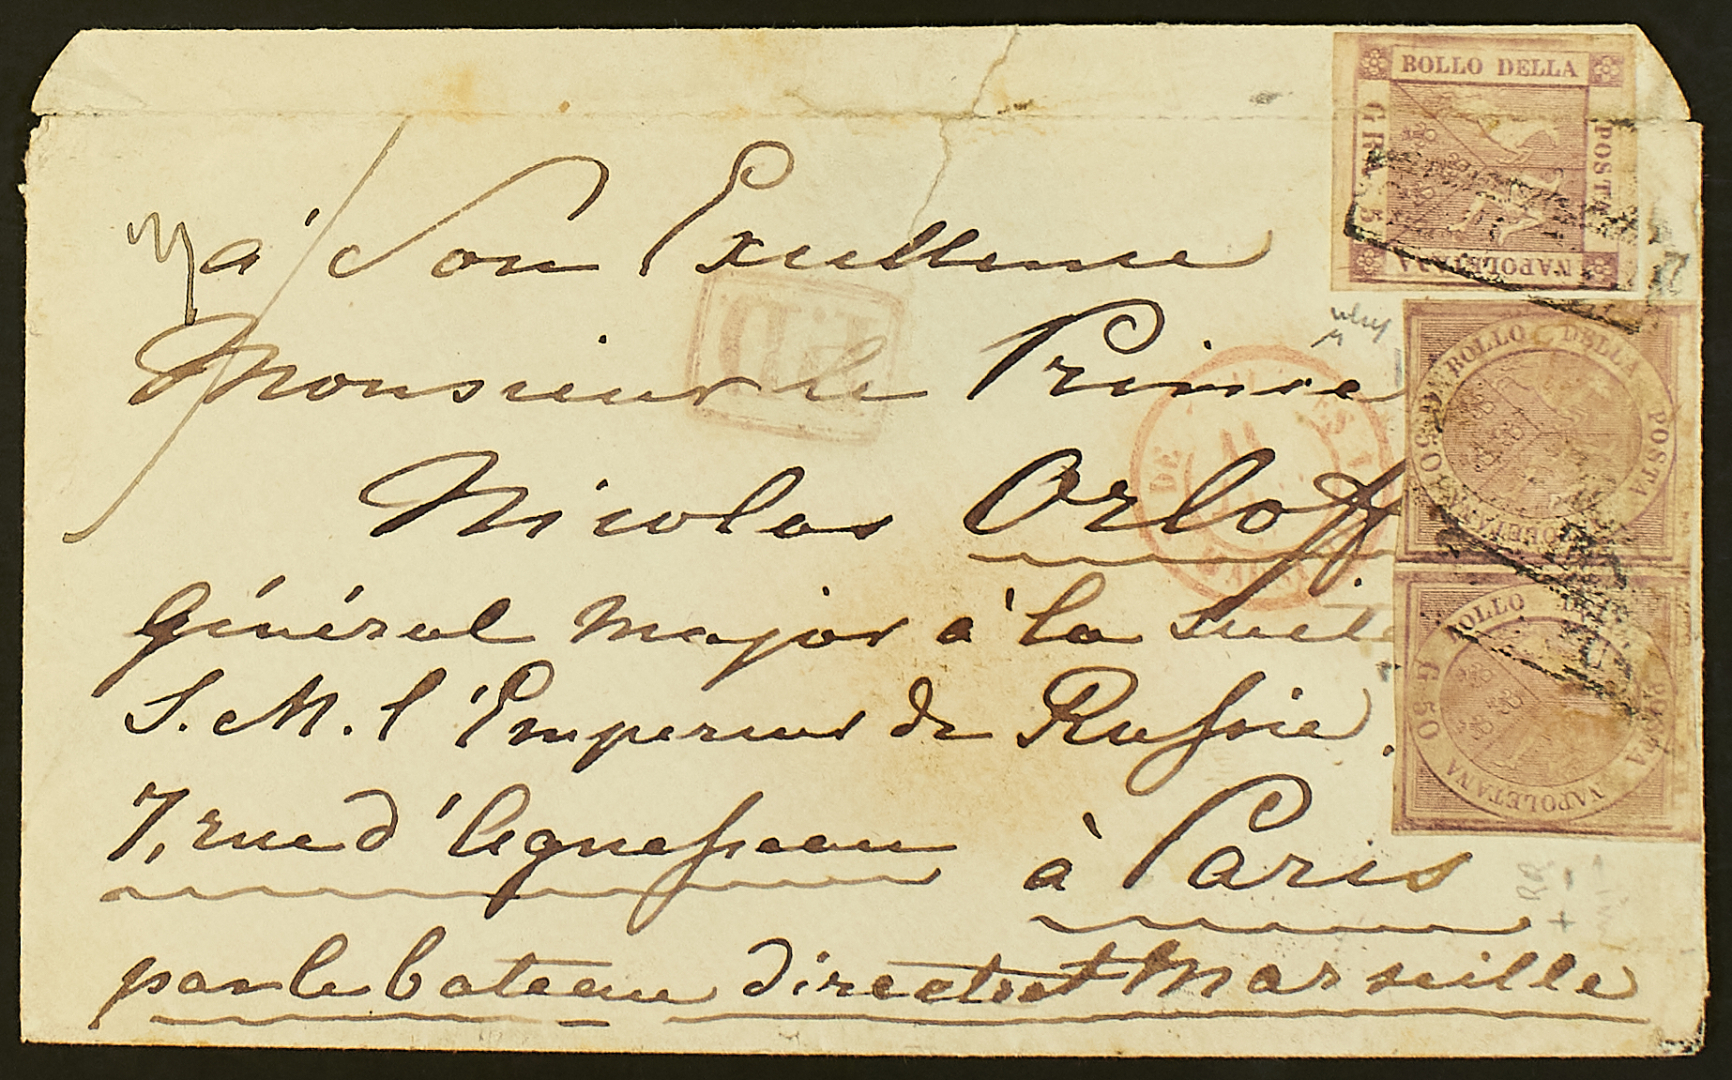 à Son Excellence
Monsieur le Prince
Nicolas Orloff
Général Major à la Suite
S. M. l'Empereur de Russie.
7, rue d'Aguesseau à Paris
par le bateau direct et Marseille
P.D.
BOLLO DELLA
POSTA
NAPOLETANA
GRA. 5
BOLLO DELLA POSTA NAPOLETANA G. 50
BOLLO DELLA POSTA NAPOLETANA G. 50
RR